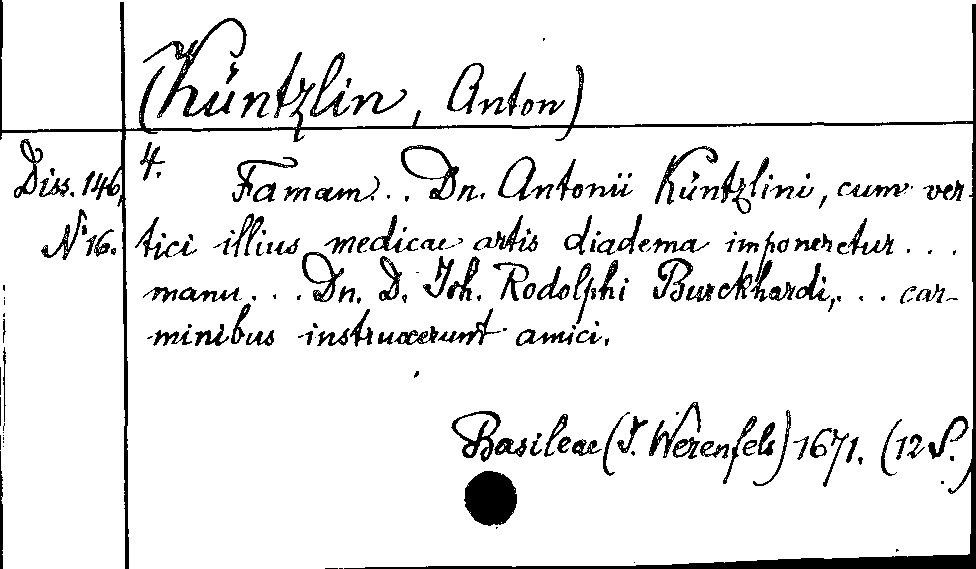 (Küntzlin, Anton)
Diss. 146,
N° 16.
4.
Famam... Dn. Antonii Küntzlini, cum ver-
tici illius medicae artis diadema imponeretur...
manu... Dn. D. Joh. Rodolphi Burckhardi,... car-
minibus instruxerunt amici.
Basileae (J. Werenfels) 1671. (12 S.)